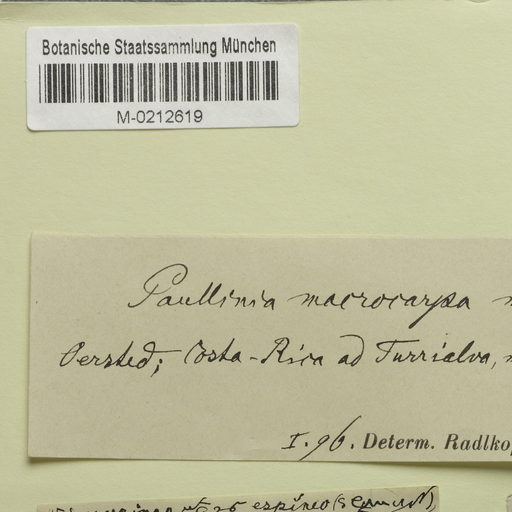 Botanische Staatssammlung München
M-0212619
Paullinia macrocarpa
Oersted; Costa-Rica ad Turrialva,
I. 96. Determ. Radlko
espíneo